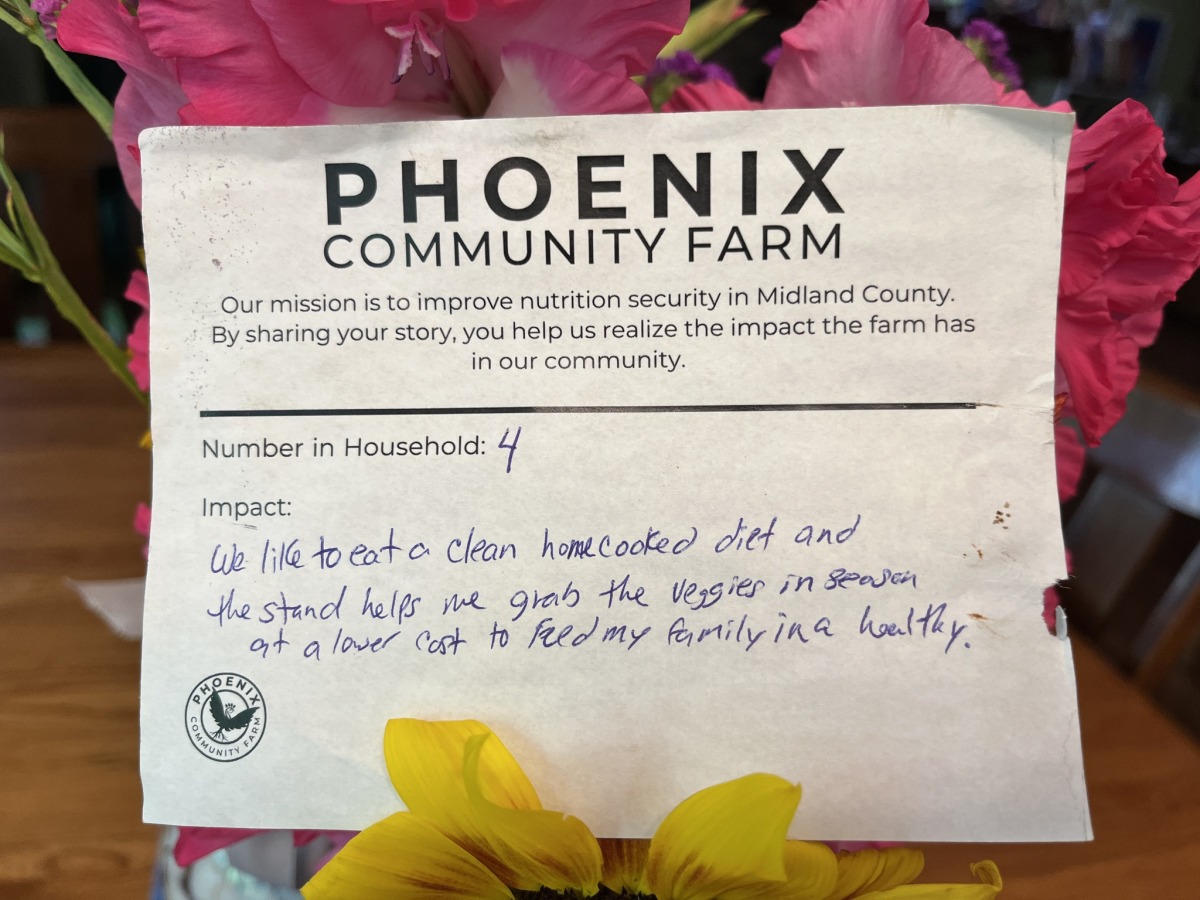 PHOENIX
COMMUNITY FARM
Our mission is to improve nutrition security in Midland County.
By sharing your story, you help us realize the impact the farm has
in our community.
Number in Household: 4
Impact:
We like to eat a clean homecooked diet and
the stand helps me grab the veggies in season
at a lower cost to feed my family in a healthy.
PHOENIX
COMMUNITY FARM